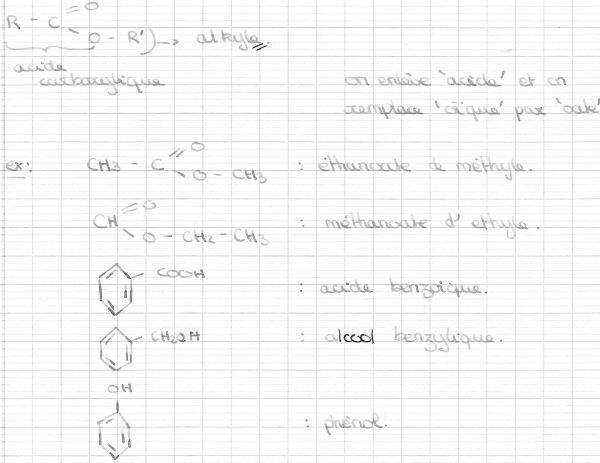 R - C = O
O - R') → alkyle.
acide
carboxylique
on enlève 'acide' et on
remplace 'oïque' par 'oate'
ex: CH3 - C = O
O - CH3 : éthanoate de méthyle.
CH = O
O - CH2 - CH3 : méthanoate d'ethyle.
COOH : acide benzoïque.
CH2OH : alcool benzylique.
OH
: phénol.